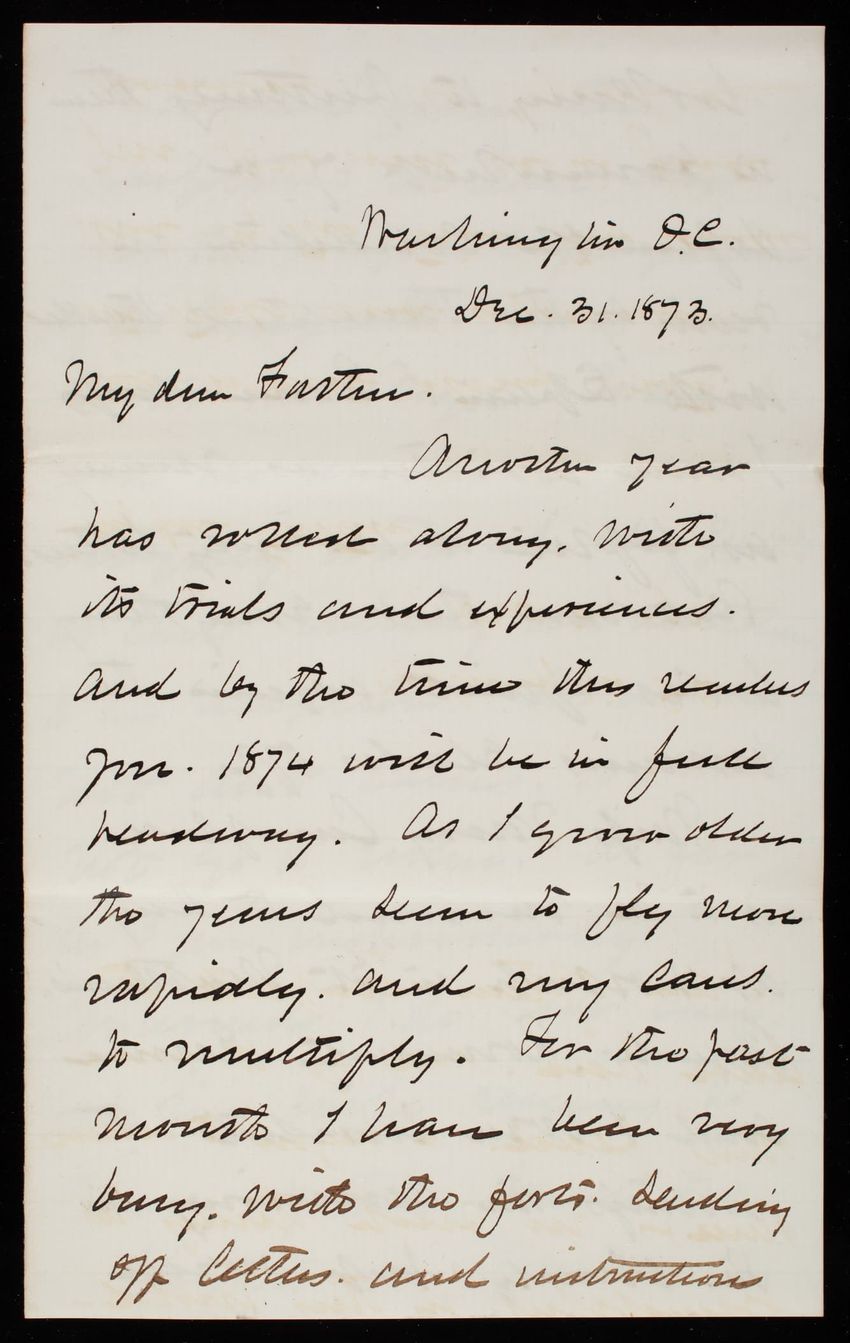 Washington D.C.
Dec. 31. 1873.
My dear Foster.
Another year
has rolled along. with
its trials and experiences.
and by the time this reaches
you. 1874 will be in full
headway. As I grow older
the years seem to fly more
rapidly. and my cares.
to multiply. For the past
month I have been very
busy. with the forts. sending
off letters. and instructions